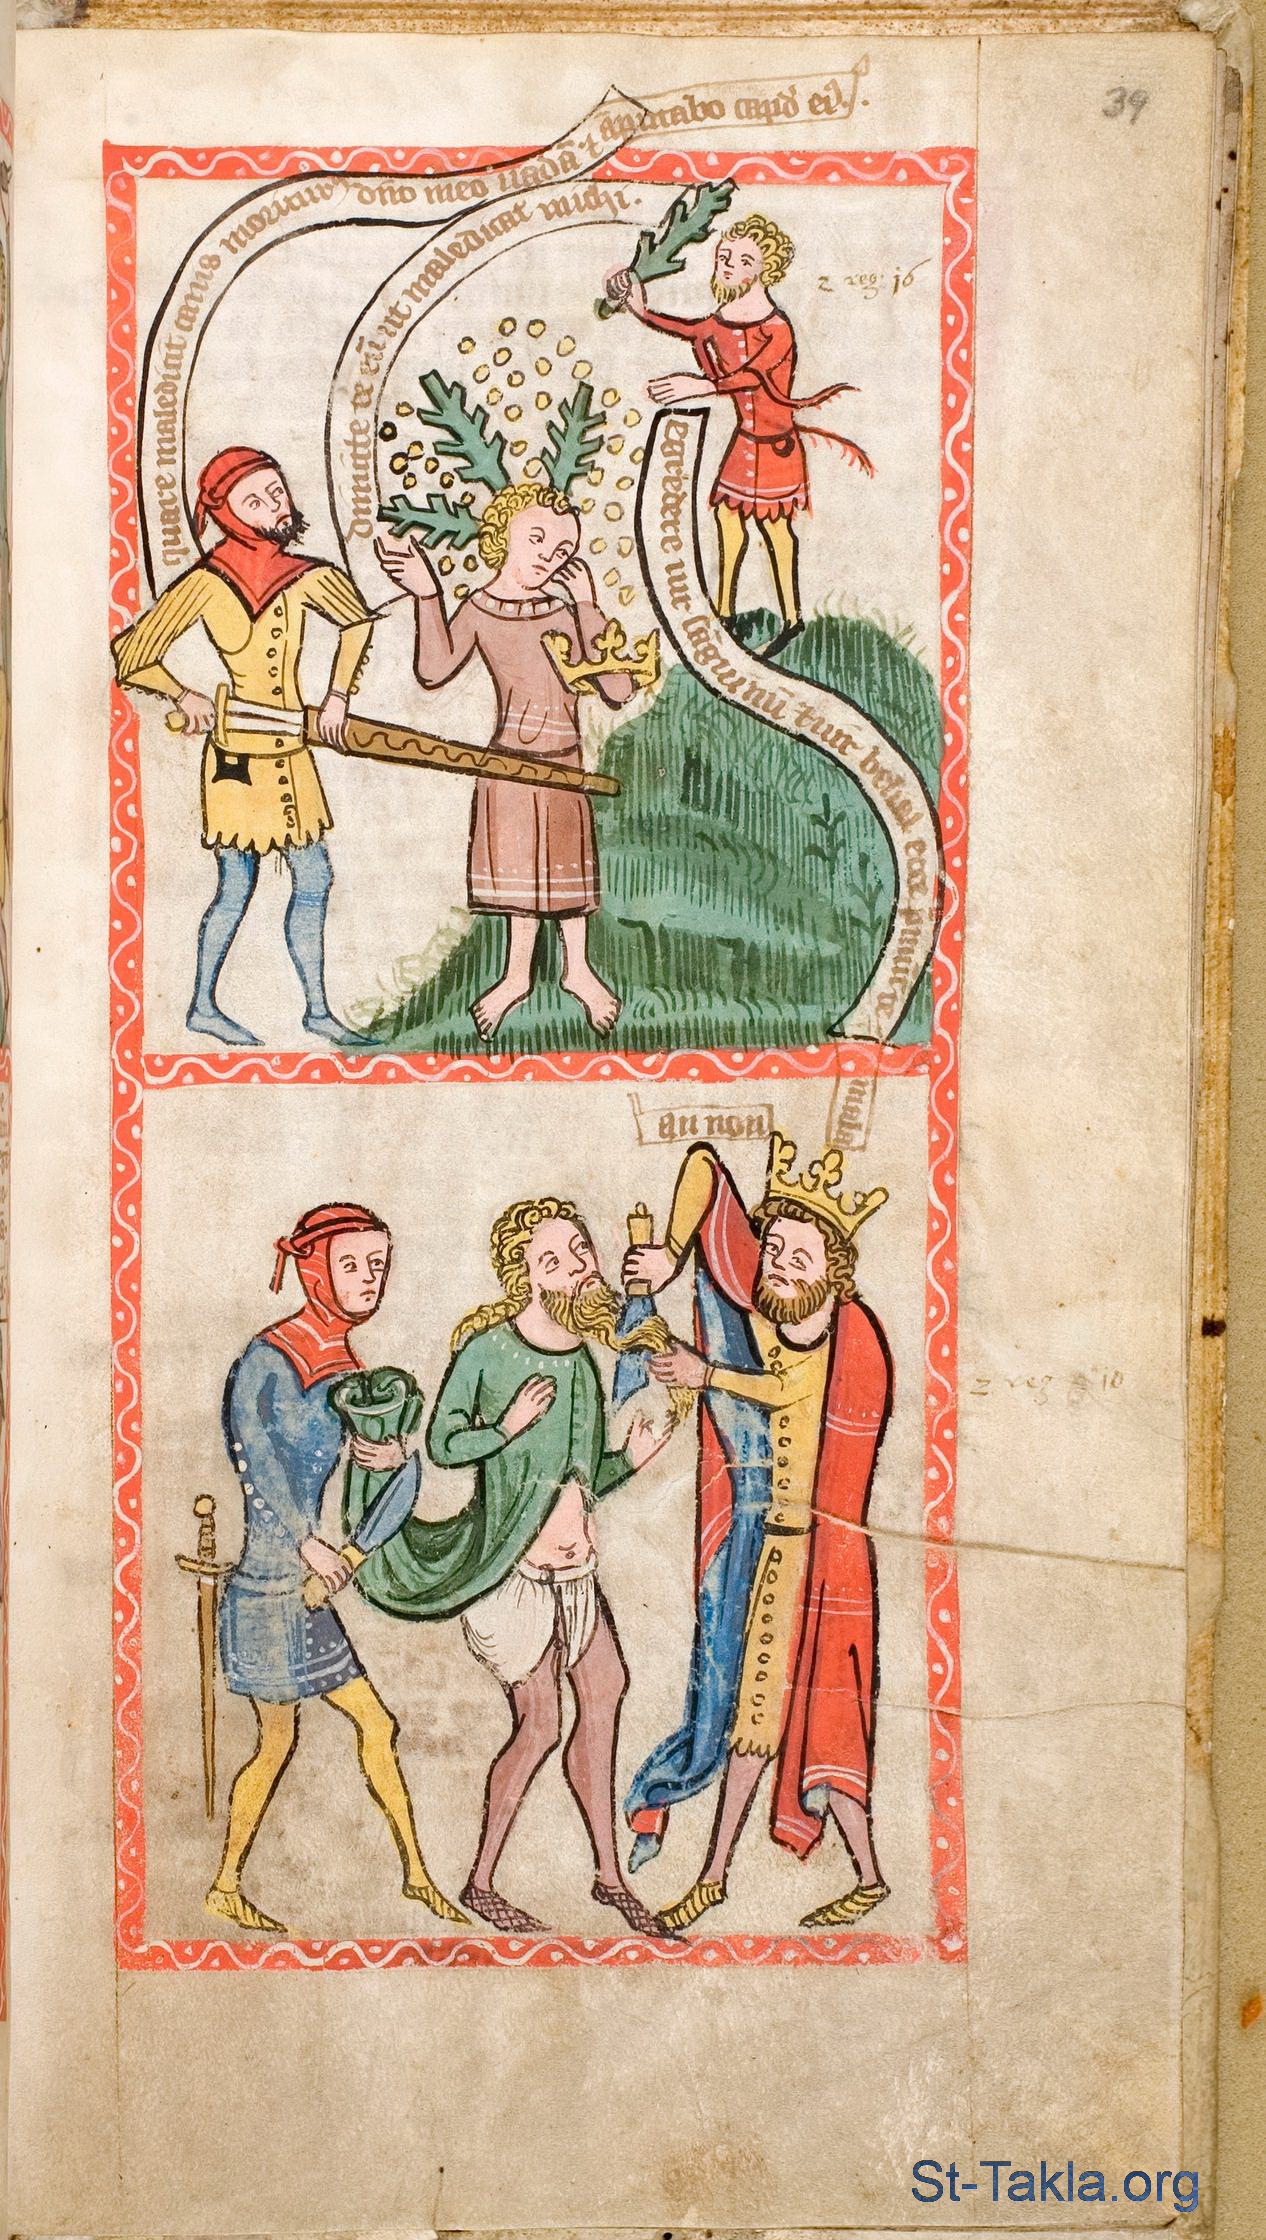 39
quare maledicit canis moritur(us) dño meo uadā ⁊ āputabo capud eiꝰ.
dimitte te eū ut maledicat michi.
2 reg. 16
egredere uir sāguinū ⁊ uir belial ecce p̄mūt te
mala
an non
2 reg 10
St-Takla.org